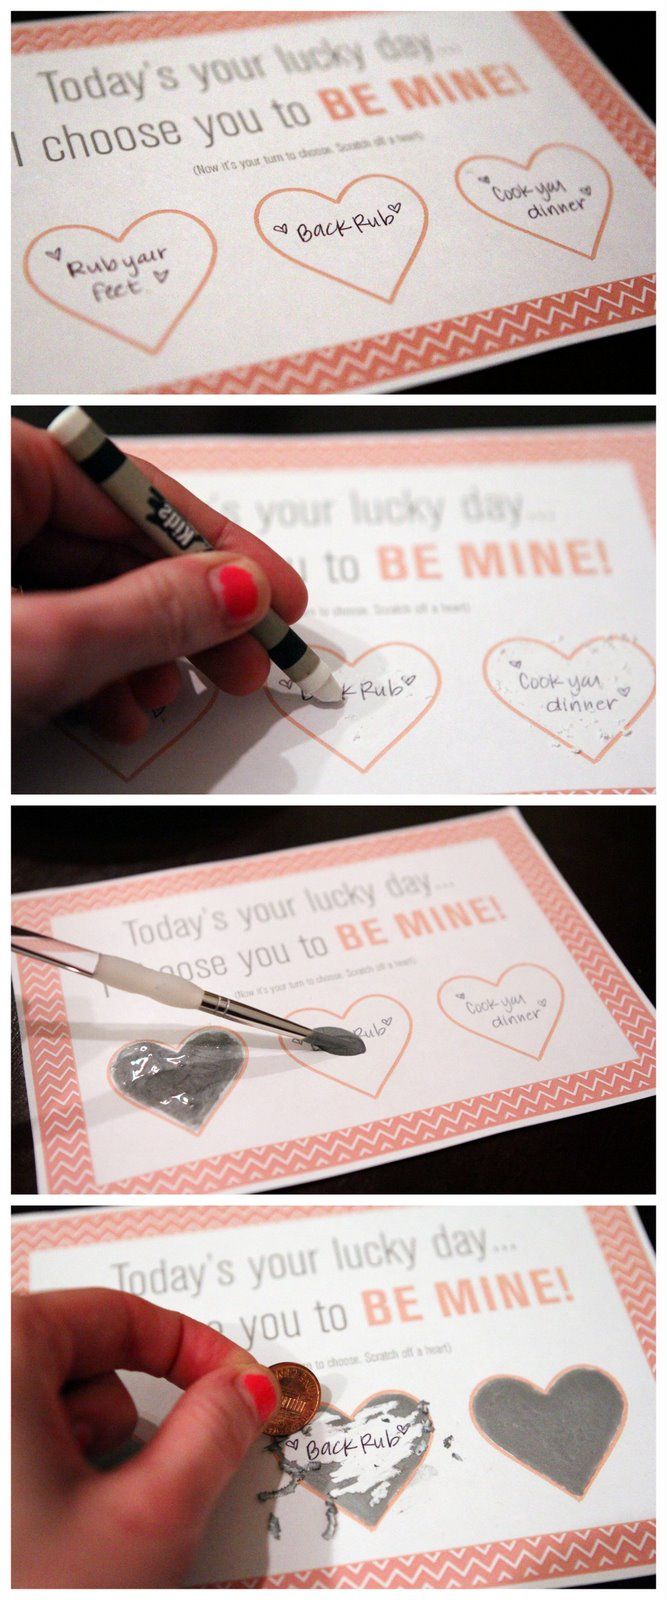 Today's your lucky day...
I choose you to BE MINE!
(Now it's your turn to choose. Scratch off a heart)
Rub your
feet
Back Rub
Cook you
dinner
Kids
's your lucky day...
to BE MINE!
to choose. Scratch off a heart)
k Rub
Cook you
dinner
Today's your lucky day...
I oose you to BE MINE!
(Now it's your turn to choose. Scratch off a heart)
Rub
Cook you
dinner
Today's your lucky day...
you to BE MINE!
to choose. Scratch off a heart)
Back Rub